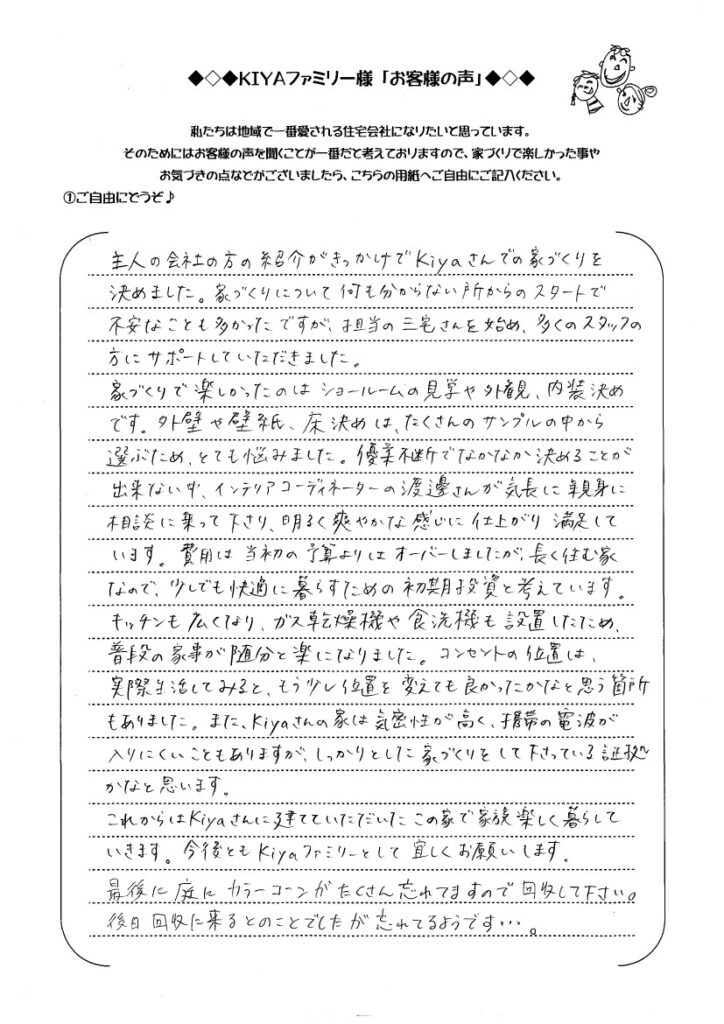 ◆◇◆KIYAファミリー様「お客様の声」◆◇◆
私たちは地域で一番愛される住宅会社になりたいと思っています。
そのためにはお客様の声を聞くことが一番だと考えておりますので、家づくりで楽しかった事や
お気づきの点などがございましたら、こちらの用紙へご自由にご記入ください。
①ご自由にどうぞ♪
主人の会社の方の紹介がきっかけでKiyaさんでの家づくりを
決めました。家づくりについて何も分からない所からのスタートで
不安なことも多かったですが、担当の三宅さんを始め、多くのスタッフの
方にサポートしていただきました。
家づくりで楽しかったのはショールームの見学や外観、内装決め
です。外壁や壁紙、床決めは、たくさんのサンプルの中から
選ぶため、とても悩みました。優柔不断でなかなか決めることが
出来ない中、インテリアコーディネーターの渡邊さんが気長に親身に
相談に乗って下さり、明るく爽やかな感じに仕上がり満足して
います。費用は当初の予算よりはオーバーしましたが、長く住む家
なので、少しでも快適に暮らすための初期投資と考えています。
キッチンも広くなり、ガス乾燥機や食洗機も設置したため、
普段の家事が随分と楽になりました。コンセントの位置は、
実際生活してみると、もう少し位置を変えても良かったかなと思う箇所
もありました。また、Kiyaさんの家は気密性が高く、携帯の電波が
入りにくいこともありますが、しっかりとした家づくりをして下さっている証拠
かなと思います。
これからはKiyaさんに建てていただいたこの家で家族楽しく暮らして
いきます。今後ともKiyaファミリーとして宜しくお願いします。
最後に庭にカラーコーンがたくさん忘れてますので回収して下さい。
後日回収に来るとのことでしたが忘れてるようです…。